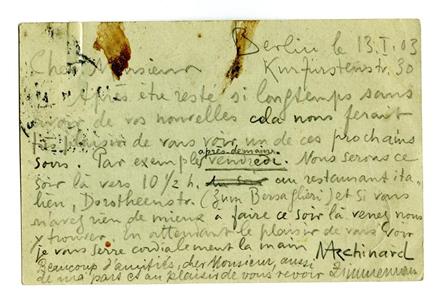 Berlin le 13.I.03
Cher Monsieur Kurfürstenstr. 30
Après être resté si longtemps sans
avoir de vos nouvelles cela nous ferait
plaisir de vous voir un de ces prochains
après demain
soirs. Par exemple vendredi. Nous serons ce
soir là vers 10 1/2 h. au restaurant ita-
lien, Dorotheenstr. (Zum Bersaglieri) et si vous
n'avez rien de mieux à faire ce soir là venez nous
y trouver. En attendant le plaisir de vous voir
je vous serre cordialement la main
Beaucoup d'amitiés, cher Monsieur, aussi
de ma part et au plaisir de vous revoir Zimmermann